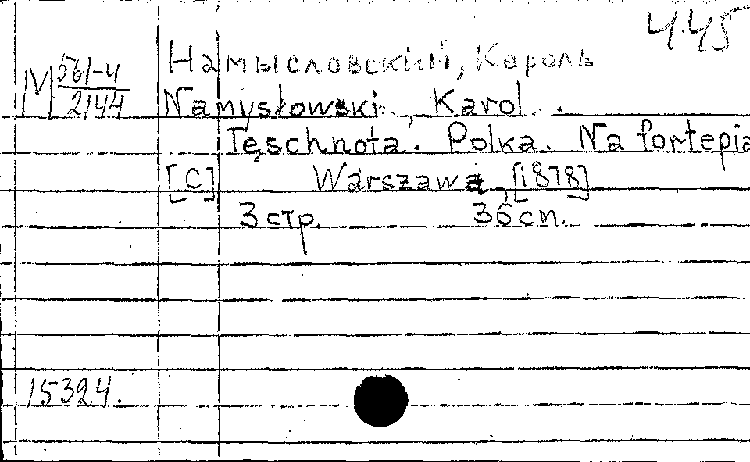 445
Намысловский, Кароль
М 561-4
2144
Namysłowski, Karol.
Tęschnota. Polka. Na fortepia
[C] Warszawa, [1878]
3 стр. 36 сп.
15324.